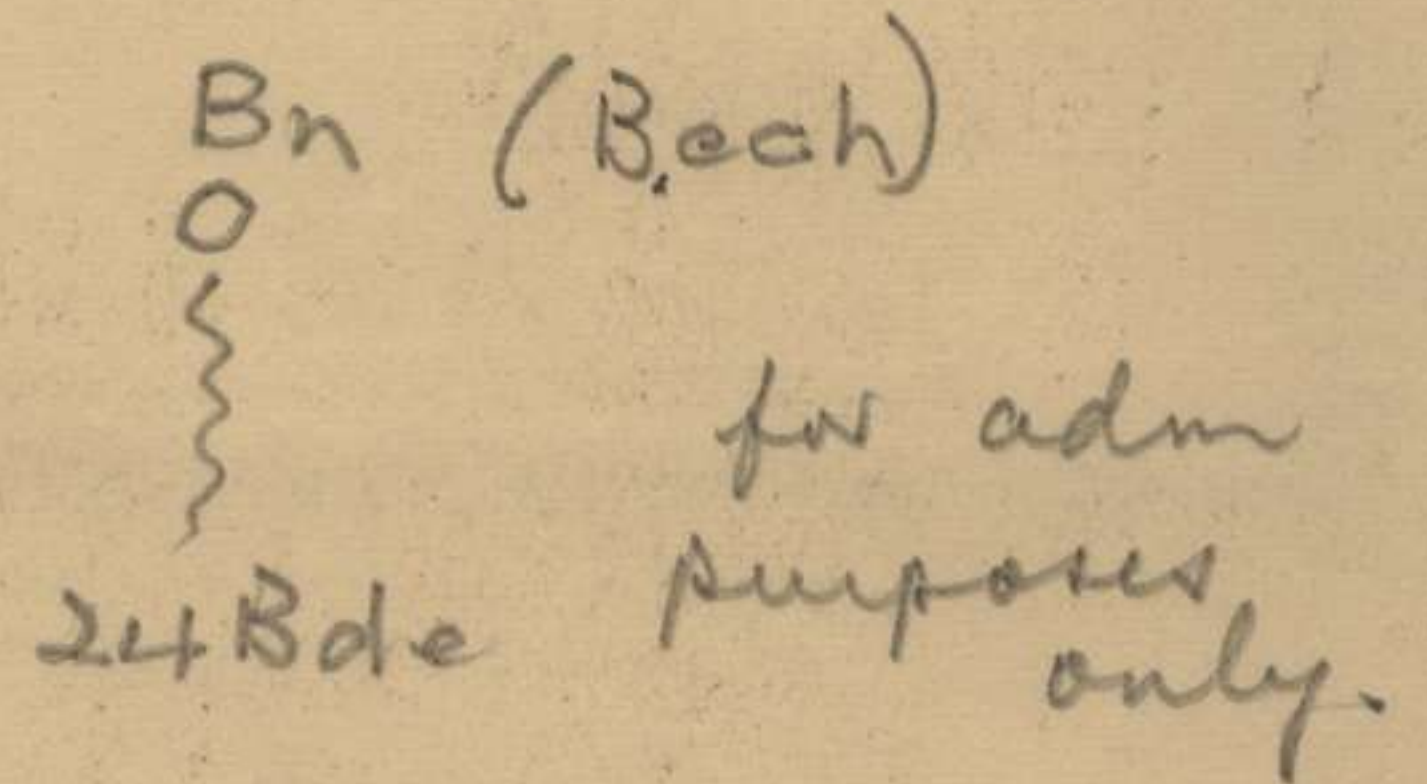 Bn (B.ech)
24 Bde
for adm
purposes
only.